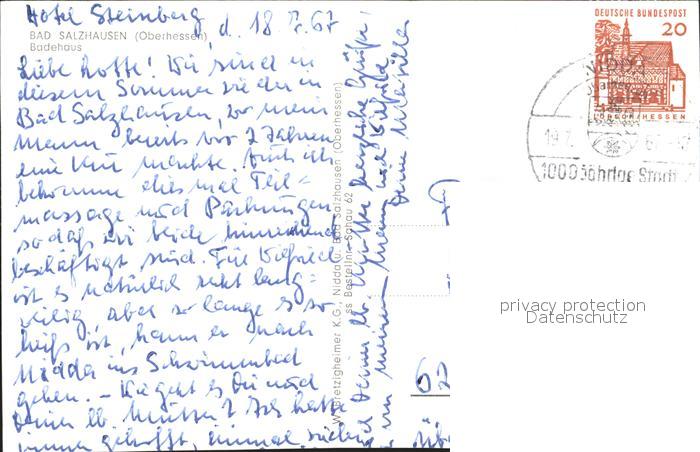 Hotel Steinberg, d. 18.7.67
BAD SALZHAUSEN (Oberhessen)
Badehaus
Liebe Lotte! Wir sind in
diesem Sommer wieder in
Bad Salzhausen, wo mein
Mann bereits vor 2 Jahren
eine Kur machte. Auch ich
bekomme diesmal Teil-
massage und Packungen,
sodaß wir beide hinreichend
beschäftigt sind. Für Wilfried
ist es natürlich recht lang-
weilig, aber solange es so
heiß ist, kann er nach
Nidda ins Schwimmbad
gehen. – Wie geht es Dir und
Deiner lb. Mutter? Ich hatte
immer gehofft, einmal
Deiner lb. Mutter herzliche Grüße
von meinem Mann und Wilfried
Deine
W. Bretzigheimer K.G., Nidda
Bad Salzhausen (Oberhessen)
62
DEUTSCHE BUNDESPOST
20
LORSCH/HESSEN
19.7.
67
1000 Jährige Stadt
privacy protection
Datenschutz